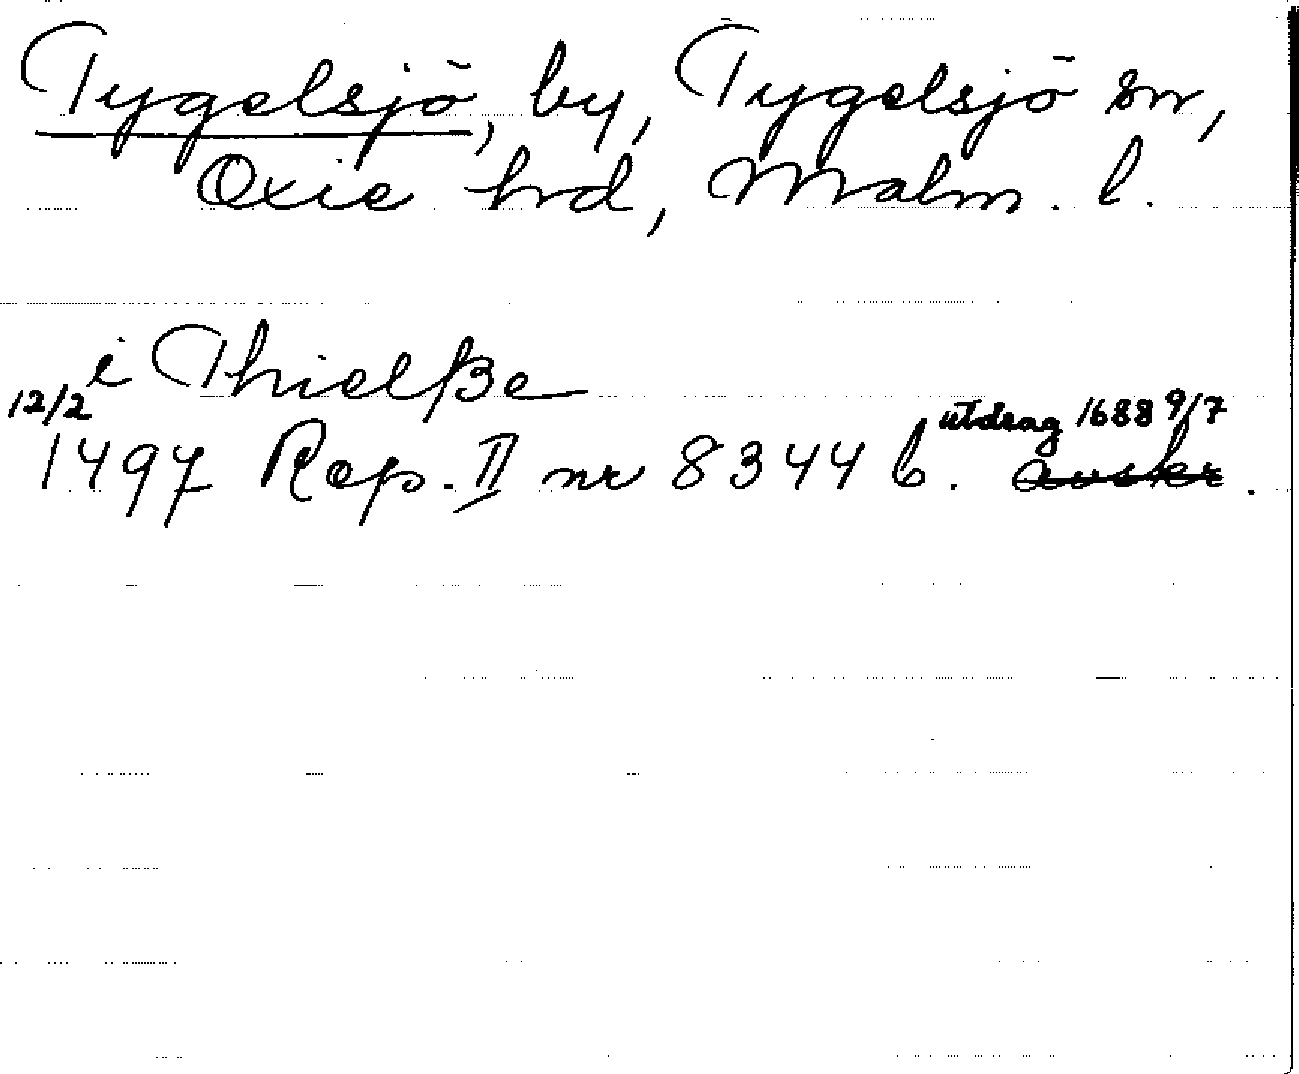 Tygelsjö, by, Tygelsjö sn,
Oxie hrd, Malm. l.
i Thielße
12/2
utdrag 1688 9/7
1497 Rep. II nr 8344 b. avskr.